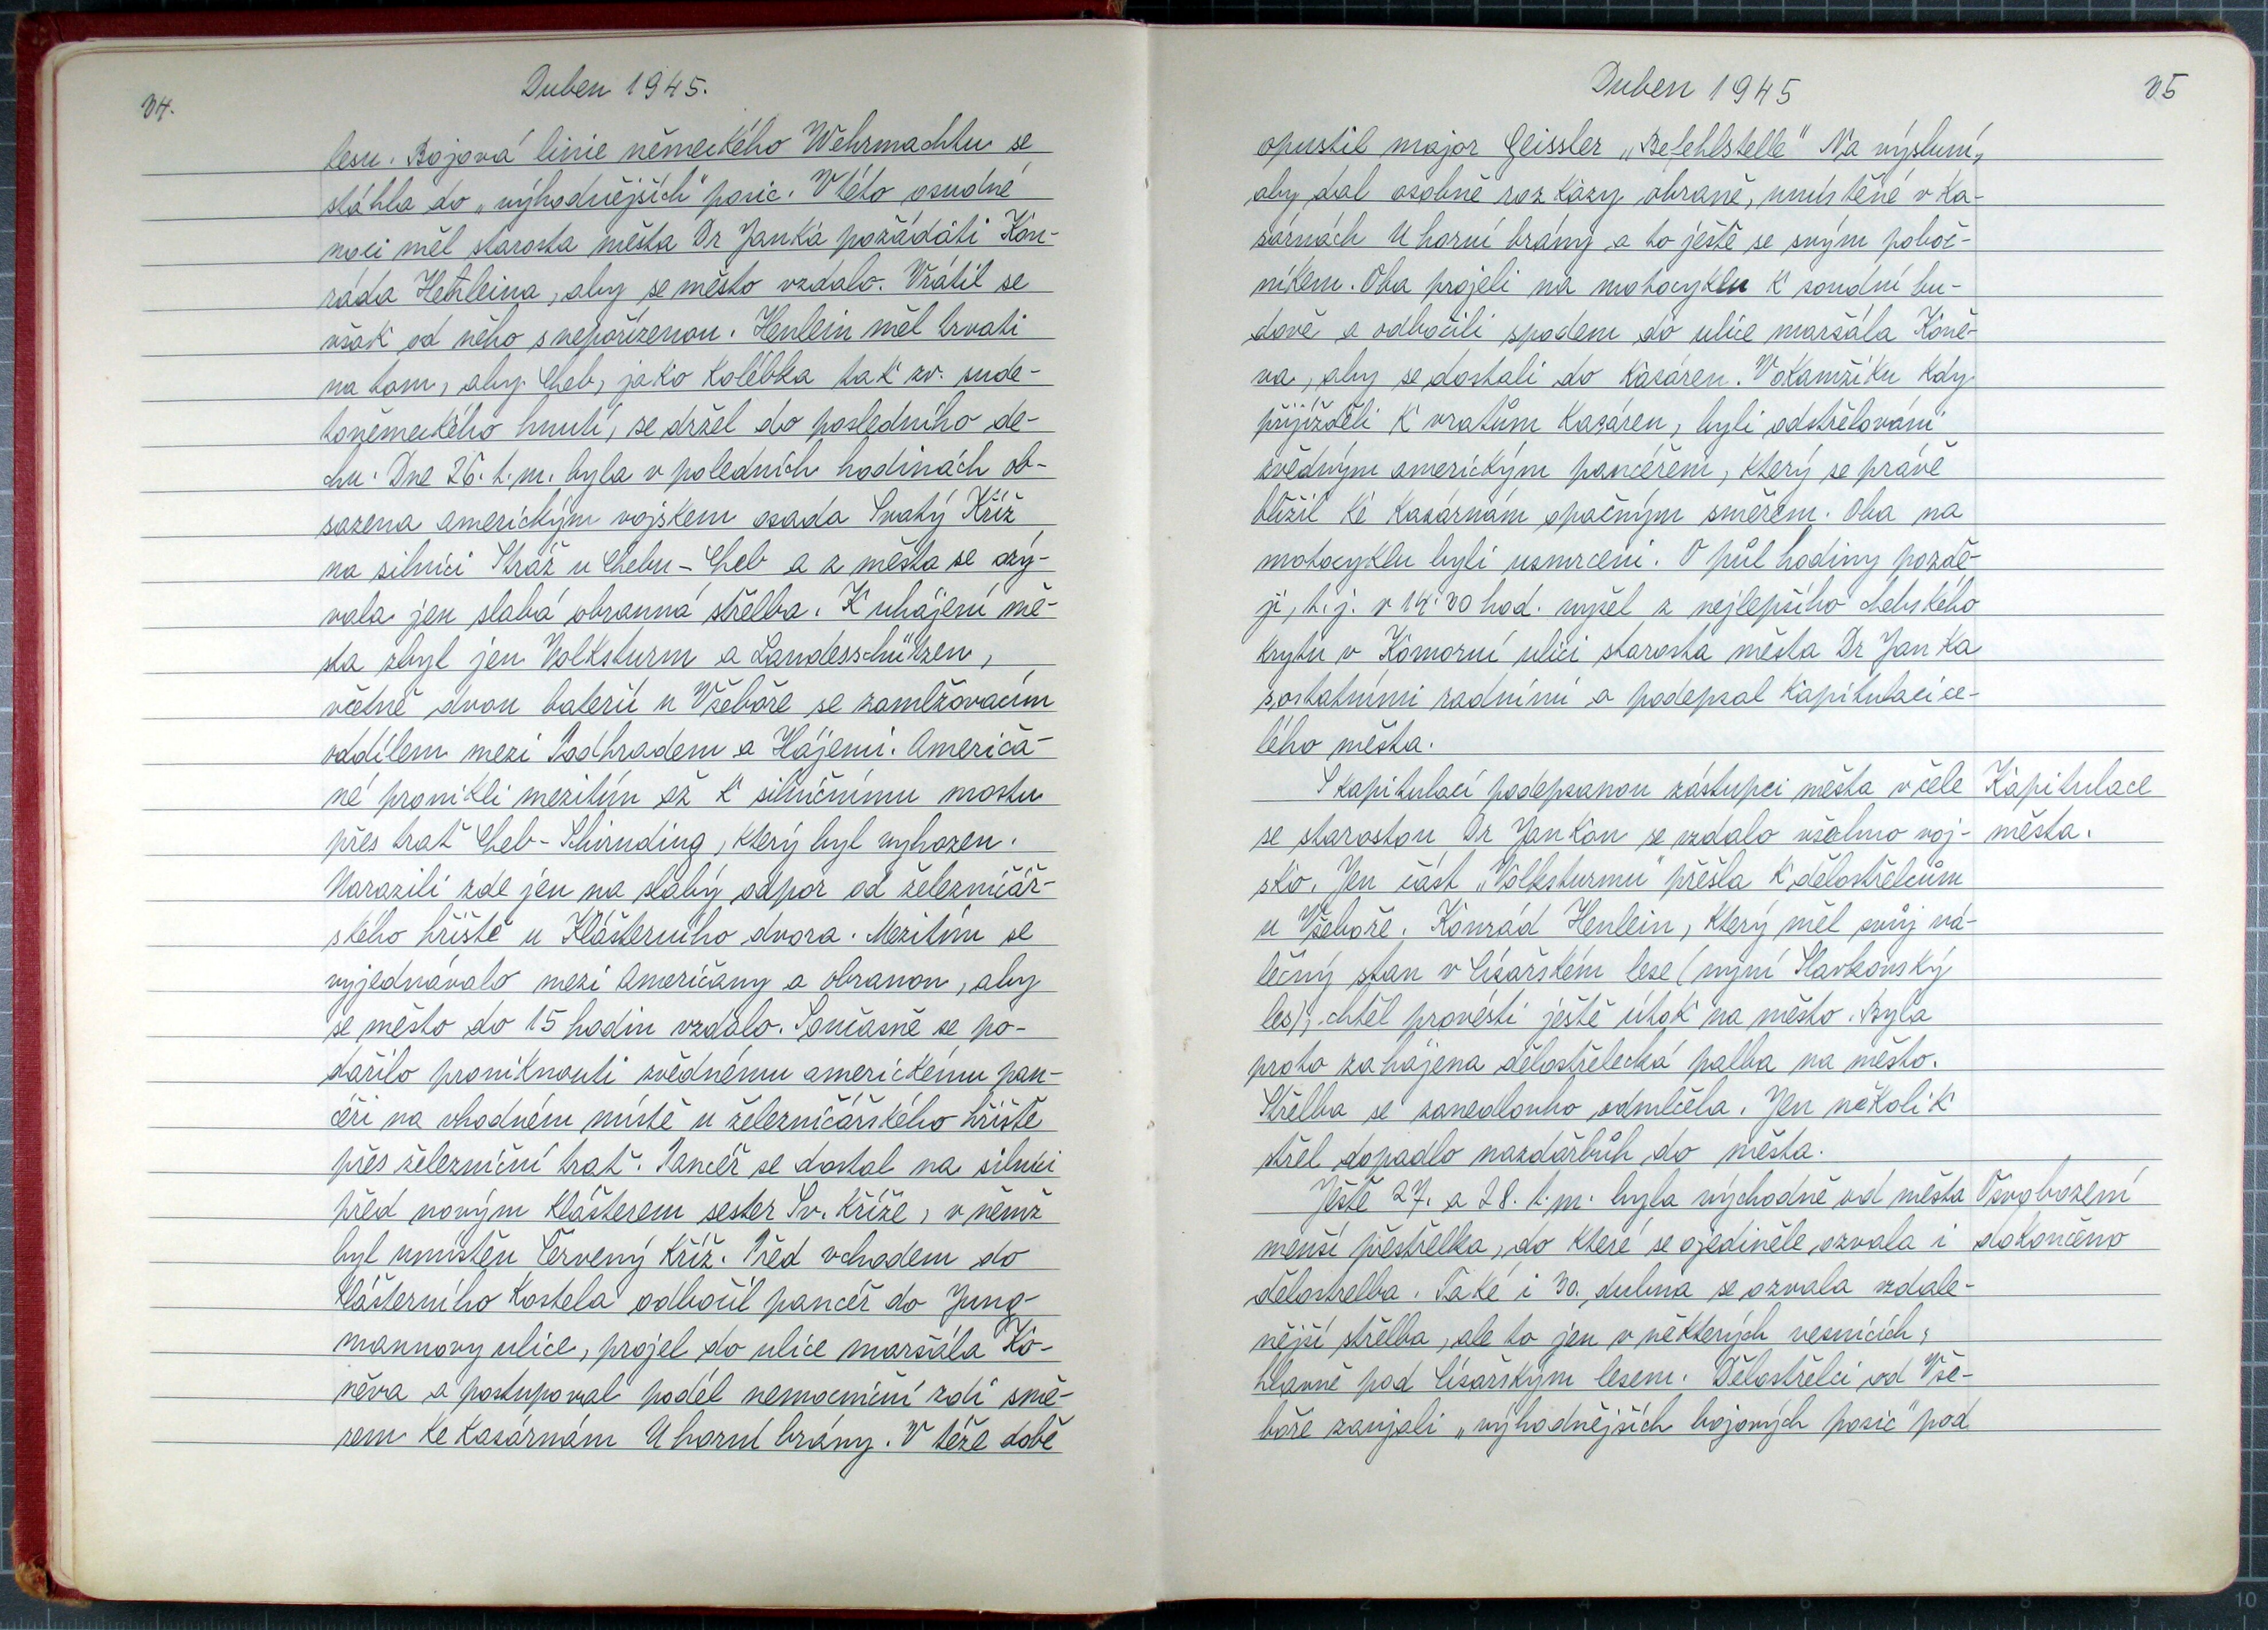 34.
Duben 1945.
lesu. Bojová linie německého Wehrmachtu se
stáhla do „výhodnějších" posic. V této osudné
noci měl starosta města Dr Janka požádáti Kon-
ráda Henleina, aby se město vzdalo. Vrátil se
však od něho s nepořízenou. Henlein měl trvati
na tom, aby Cheb, jako kolébka tak zv. sude-
toněmeckého hnutí, se držel do posledního de-
chu. Dne 26. t. m. byla v poledních hodinách ob-
sazena americkým vojskem osada Svatý Kříž
na silnici Stráž u Chebu - Cheb a z města se ozý-
vala jen slabá obranná střelba. K uhájení mě-
sta zbyl jen Volksturm a Landesschützen,
včetně dvou baterií u Všeboře se zamlžovacím
oddílem mezi Podhradem a Hájemi. Američa-
né pronikli mezitím až k silničnímu mostu
přes trať Cheb - Schirnding, který byl vyhozen.
Narazili zde jen na slabý odpor od železničář-
ského hřiště u Klášterního dvora. Mezitím se
vyjednávalo mezi Američany a obranou, aby
se město do 15 hodin vzdalo. Současně se po-
dařilo proniknouti zvědnému americkému pan-
céři na vhodném místě u železničářského hřiště
přes železniční trať. Pancéř se dostal na silnici
před novým klášterem sester Sv. Kříže, v němž
byl umístěn Červený Kříž. Před vchodem do
klášterního kostela odbočil pancéř do Jung-
mannovy ulice, projel do ulice maršála Ko-
něva a postupoval podél nemocniční zdi smě-
rem ke kasárnám U horní brány. V téže době
Duben 1945
35
opustil major Geissler „Befehlstelle" Na výsluní,
aby dal osobně rozkazy obraně, umístěné v ka-
sárnách U horní brány a to ještě se svým poboč-
níkem. Oba projeli na motocyklu k soudní bu-
dově a odbočili spodem do ulice maršála Koně-
va, aby se dostali do kasáren. V okamžiku kdy
přijížděli k vratům kasáren, byli odstřelováni
zvědným americkým pancéřem, který se právě
blížil ke kasárnám opačným směrem. Oba na
motocyklu byli usmrceni. O půl hodiny pozdě-
ji, t. j. v 14.30 hod. vyšel z nejlepšího chebského
krytu v Komorní ulici starosta města Dr Janka
s ostatními radními a podepsal kapitulaci ce-
lého města.
S kapitulací podepsanou zástupci města v čele
Kapitulace
se starostou Dr Jankou se vzdalo všechno voj-
města.
sko. Jen část „Volksturmu" přešla k dělostřelcům
u Všeboře. Konrád Henlein, který měl svůj vá-
lečný stan v Císařském lese (nyní Slavkovský
les), chtěl provésti ještě útok na město. Byla
proto zahájena dělostřelecká palba na město.
Střelba se zanedlouho odmlčela. Jen několik
střel dopadlo nazdařbůh do města.
Ještě 27. a 28. t. m. byla východně od města
Osvobození
menší přestřelka, do které se ojediněle ozvala i
dokončeno
dělostřelba. Také i 30. dubna se ozvala vzdale-
nější střelba, ale to jen v některých vesnicích,
hlavně pod Císařským lesem. Dělostřelci od Vše-
boře zaujali „výhodnějších bojových posic" pod